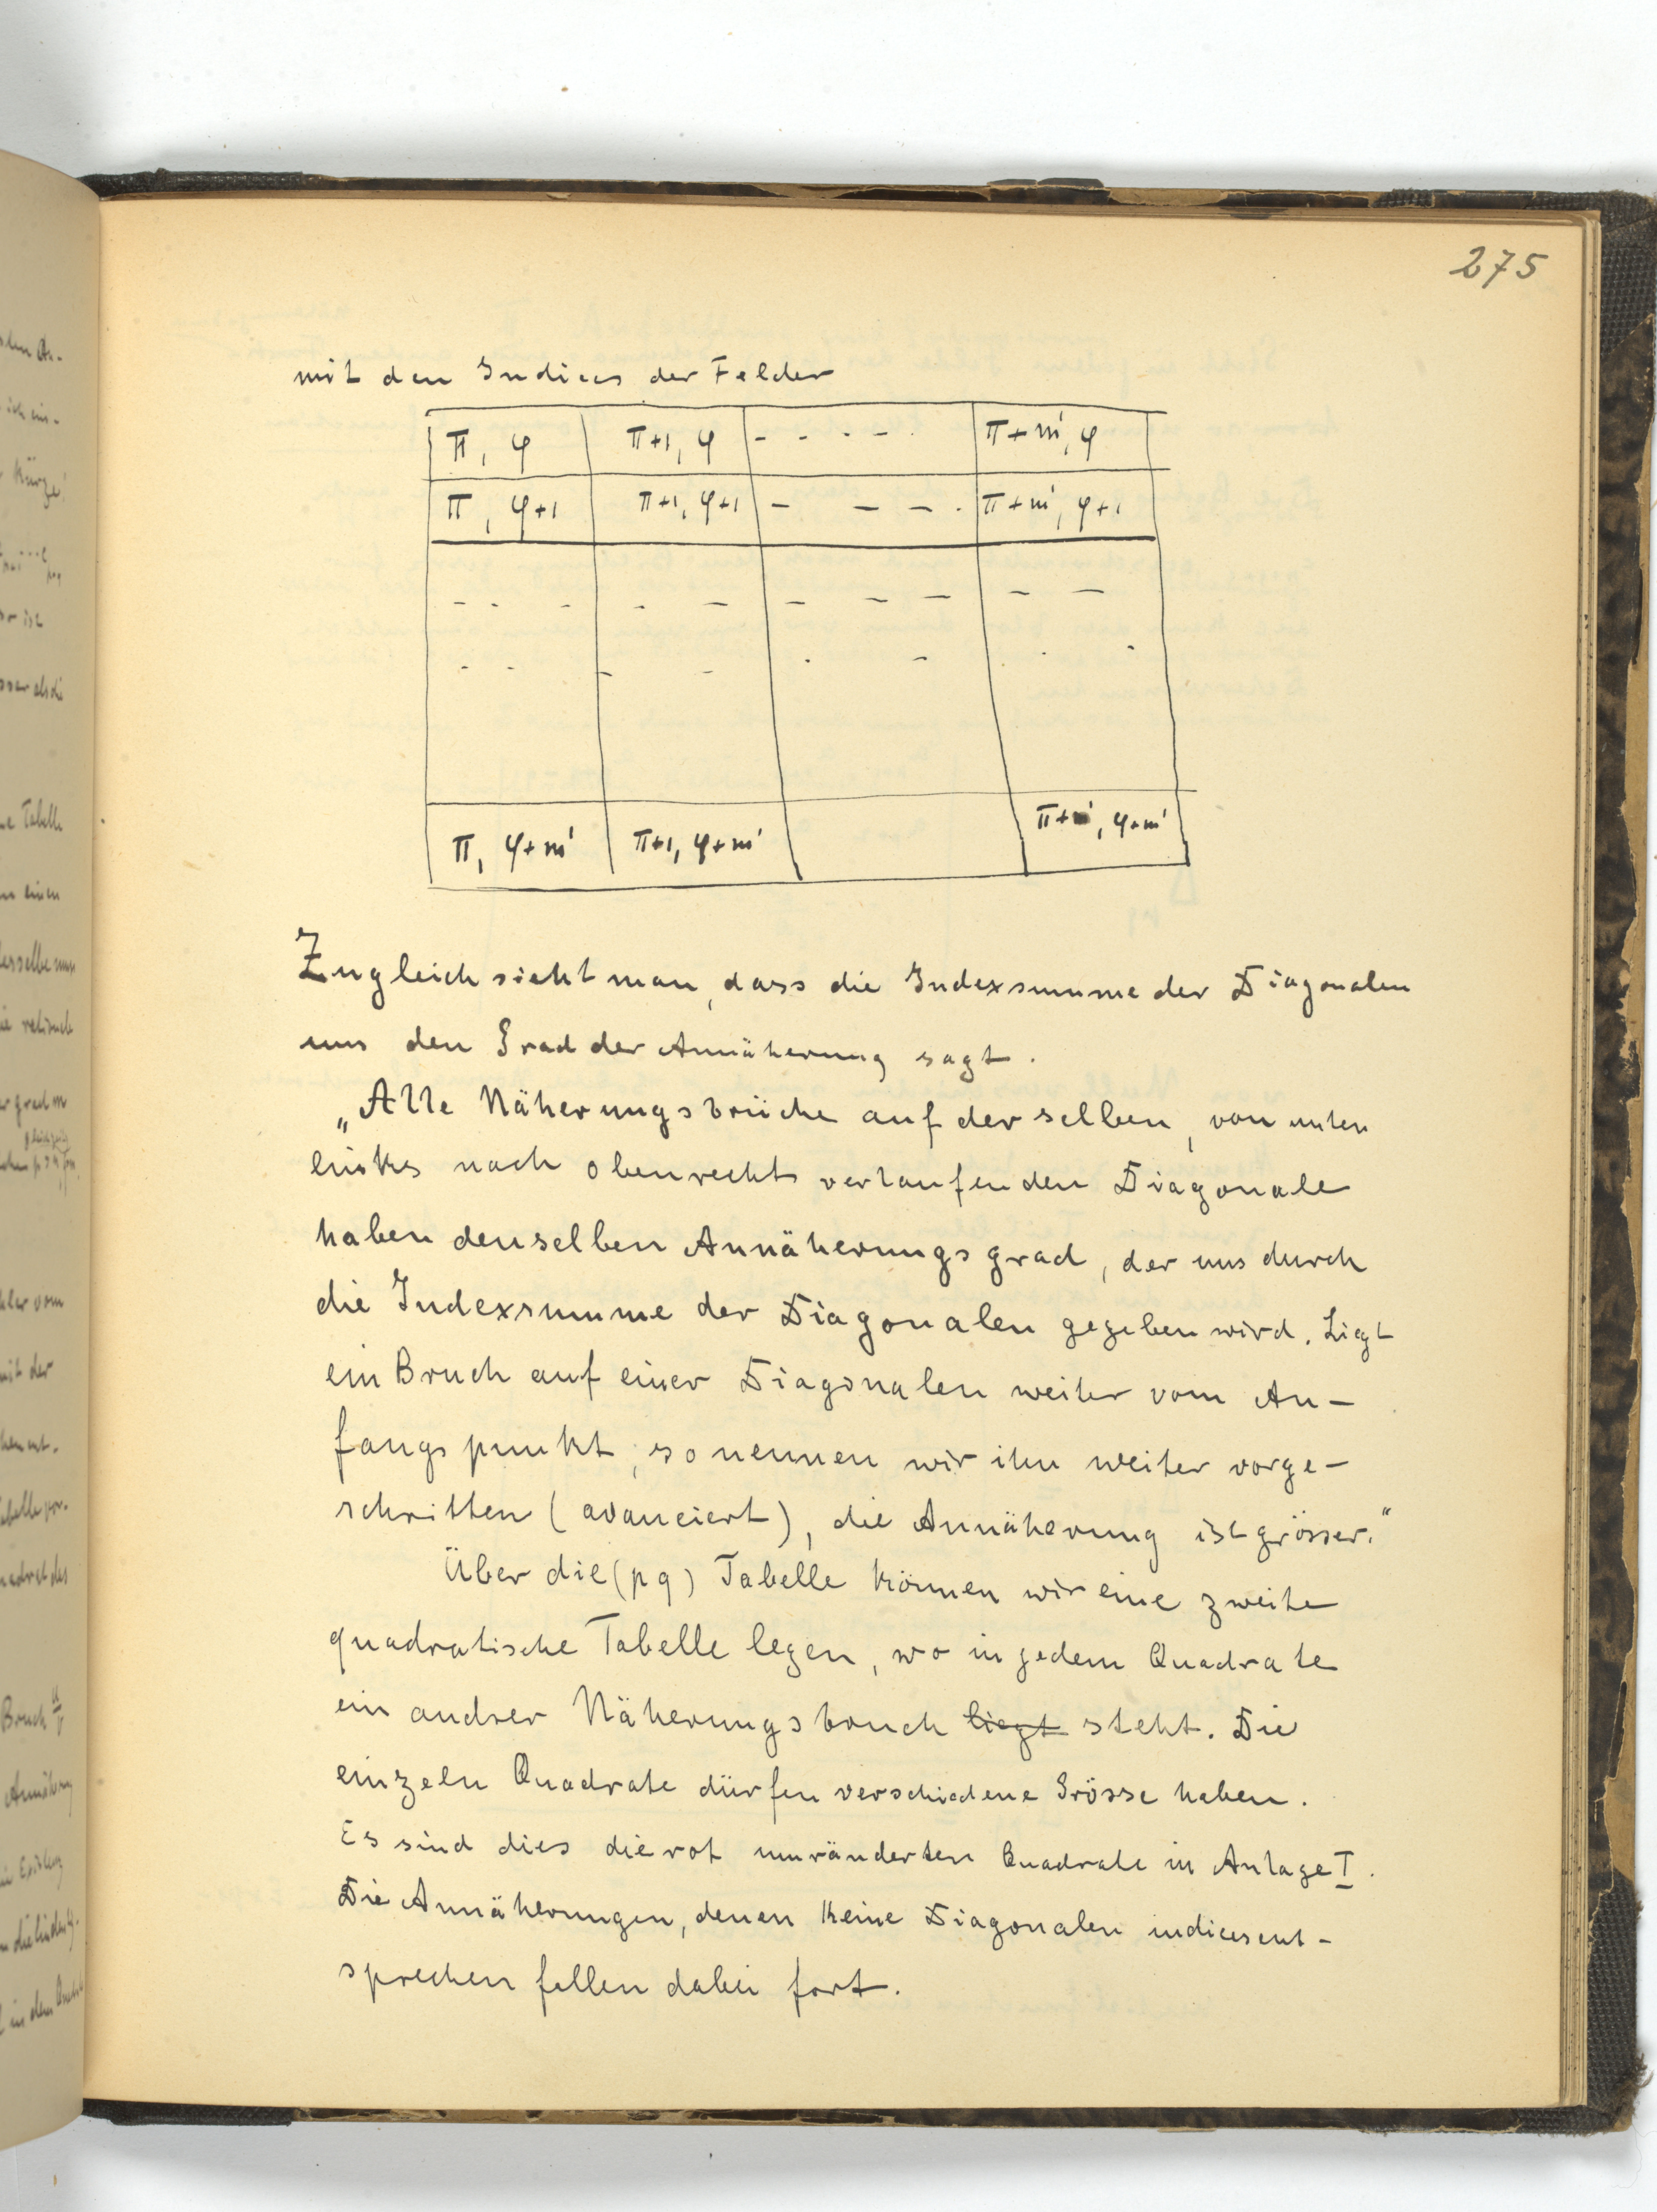 275
mit den Indices der Felder
π, φ π+1, φ - - - - π+m', φ
π, φ+1 π+1, φ+1 - - - - π+m', φ+1
π, φ+m' π+1, φ+m' π+m', φ+m'
Zugleich sieht man, dass die Indexsumme der Diagonalen
uns den Grad der Annäherung sagt.
„Alle Näherungsbrüche auf derselben, von unten
links nach obenrechts verlaufenden Diagonale
haben denselben Annäherungsgrad, der uns durch
die Indexsumme der Diagonalen gegeben wird. Liegt
ein Bruch auf einer Diagonalen weiter vom An-
fangspunkt, so nennen wir ihn weiter vorge-
schritten (avanciert), die Annäherung ist grösser."
Über die (pq) Tabelle können wir eine zweite
quadratische Tabelle legen, wo in jedem Quadrate
ein andrer Näherungsbruch liegt steht. Die
einzeln Quadrate dürfen verschiedene Grösse haben.
Es sind dies die rot umränderten Quadrate in Anlage I.
Die Annäherungen, denen keine Diagonalenindices ent-
sprechen fallen dabei fort.